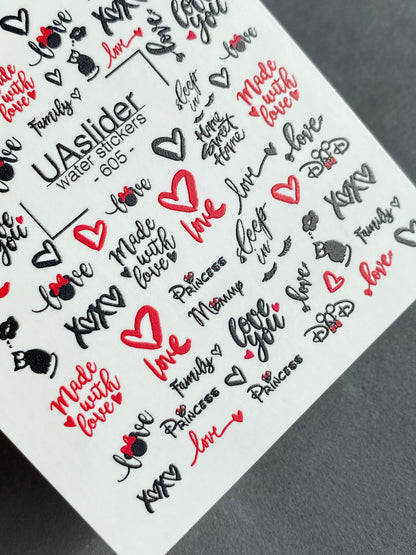 xoxo
love
you
love
love
Made
with
love
Family
love
love
sleep
in
Made
with
love
UAslider
water stickers
- 605 -
Home
Sweet
Home
love
love
DAD
love
you
love
Made
with
love
love
sleep
in
xoxo
Family
xoxo
love
Princess
Mommy
love
love
DAD
Made
with
love
Family
love
you
love
Princess
Princess
love
xoxo